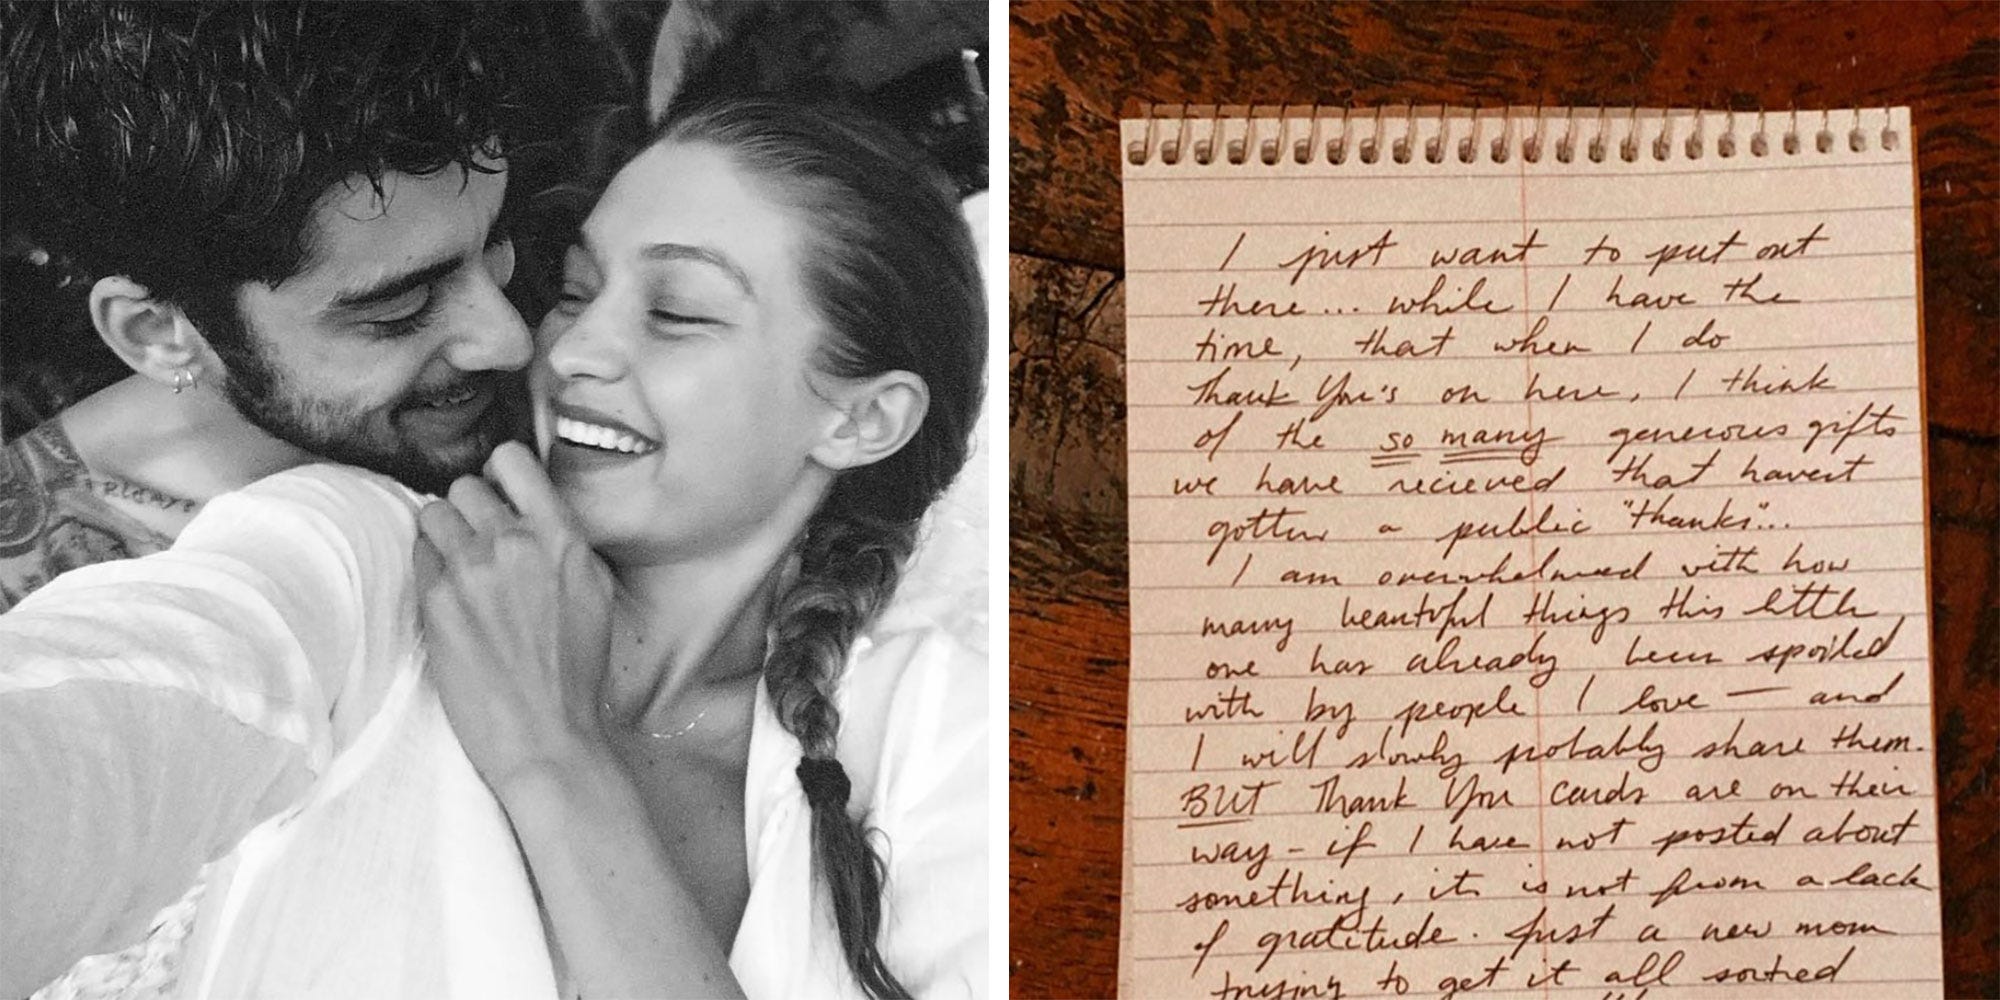 I just want to put out
there... while I have the
time, that when I do
Thank You's on here, I think
of the so many generous gifts
we have recieved that havent
gotten a public "thanks"...
I am overwhelmed with how
many beautiful things this little
one has already been spoiled
with by people I love — and
I will slowly probably share them.
BUT Thank You cards are on their
way - if I have not posted about
something, its is not from a lack
of gratitude. Just a new mom
trying to get it all sorted